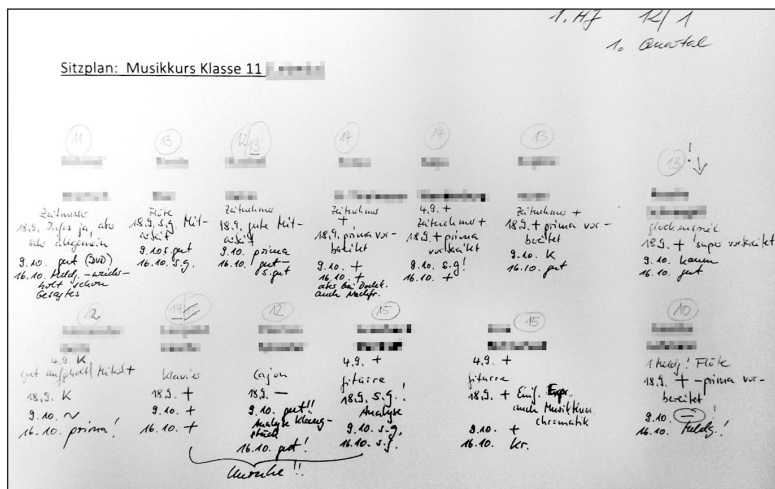 1. HJ 12/1
1. Quartal
Sitzplan: Musikkurs Klasse 11
11
Zeitmesser
18.9. Infos ja, aber
sehr allgemein
9.10. gut (DVD)
16.10. Meldg. – wieder-
holt schon
Gesagtes
13
Flöte
18.9. s.g. Mit-
arbeit
9.10 s. gut
16.10. s.g.
12/13
Zeitnehmer
18.9. gute Mit-
arbeit
9.10. prima
16.10. gut –
s.gut
14
Zeitnehmer
+
18.9. prima vor-
bereitet
9.10. +
16.10. +
aber bei
auch Nachfr.
14
4.9. +
Zeitnehmer +
18.9. + prima
vorbereitet
9.10. s.g!
16.10. +
13
Zeitnehmer +
18.9. + prima vor-
bereitet
9.10. K
16.10. gut
13 !
Glockenspiel
18.9. + ! super vorbereitet
9.10. kaum
16.10. gut
12
4.9 K
gut aufgepasst/ Mitarb +
18.9. K
9.10. ~
16.10. prima!
14
Klavier
18.9. +
9.10. +
16.10. +
12
Cajon
18.9. –
9.10. gut!!
Analyse Klang-
stück
16.10. gut!
15
4.9. +
Gitarre
18.9. s.g.!
Analyse
9.10. s.g.
16.10. s.g.
Unruhe!!
15
4.9. +
Gitarre
18.9. +
auch
chromatik
9.10. +
16.10. kr.
10
1 Meldg! Flöte
18.9. + – prima vor-
bereitet
9.10. –
16.10. Meldg!